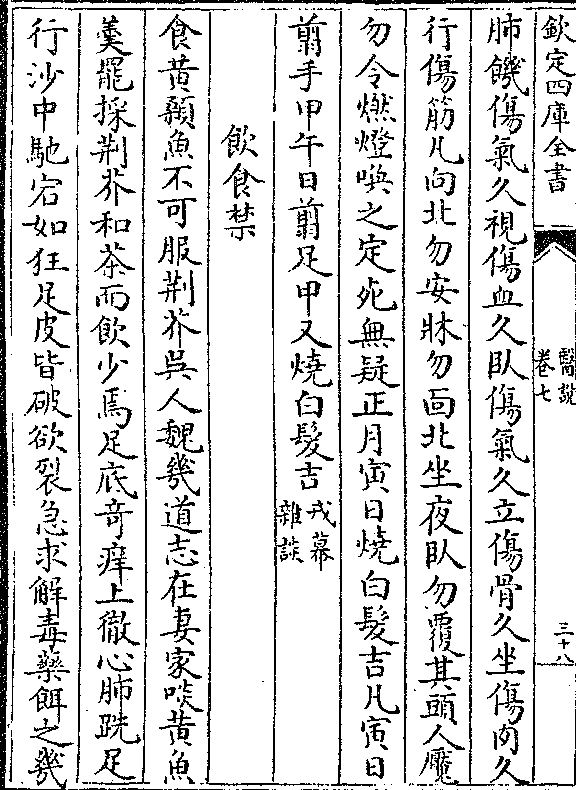 欽定四庫全書
醫說
卷七
三十八
肺饑傷氣久視傷血久臥傷氣久立傷骨久坐傷肉久
行傷筋凡向北勿安牀勿面北坐夜臥勿覆其頭人魘
勿令燃燈喚之定死無疑正月寅日燒白髮吉凡寅日
翦手甲午日翦足甲又燒白髮吉戎幕
雜談
飲食禁
食黄顙魚不可服荆芥吳人魏幾道志在妻家啖黄魚
羹罷採荆芥和茶而飲少焉足底奇痒上徹心肺跣足
行沙中馳宕如狂足皮皆破欲裂急求解毒藥餌之幾